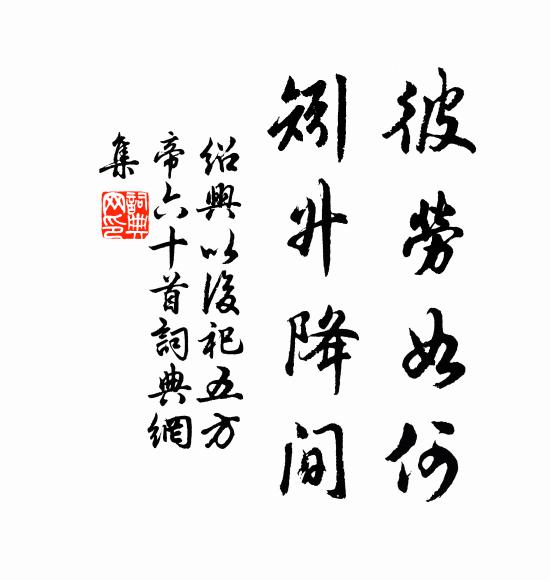 彼勞如何
矧升降間
紹興以後祀五方
帝六十首詞典網
集
詞典
网印